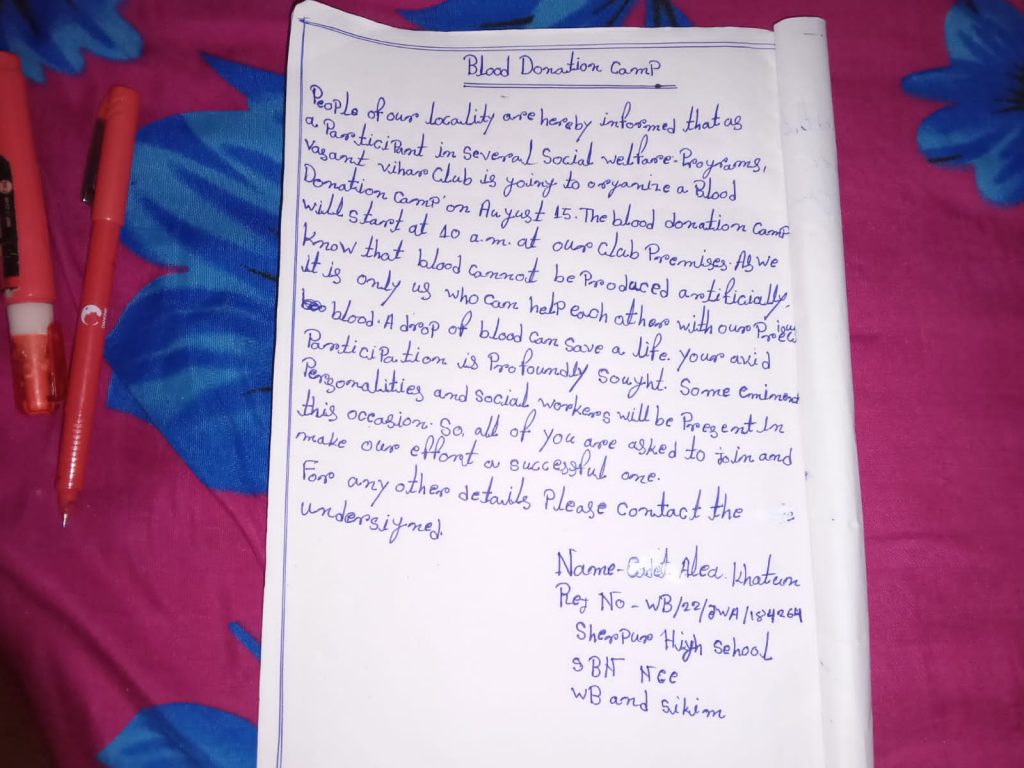 Blood Donation Camp
People of our locality are hereby informed that as
a Participant in several social welfare-Programs,
vasant vihar Club is going to organize a Blood
Donation Camp' on August 15. The blood donation camp
will start at 10 a.m. at our Club Premises. As we
Know that blood cannot be Produced artificially.
it is only us who can help each other with our Precious
blood. A drop of blood can save a life. your avid
Participation is Profoundly sought. Some eminent
Personalities and social workers will be Present in
this occasion. So, all of you are asked to join and
make our effort a successful one.
For any other details Please contact the
undersigned.
Name-Cadet Alea. Khatun
Reg No - WB/22/JWA/184264
Sherpur High School
9BN NCC
WB and sikim